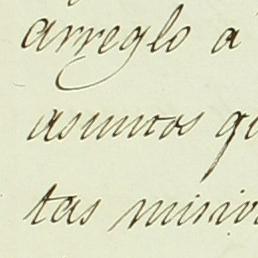 arreglo a
asuntos qu
tas minis